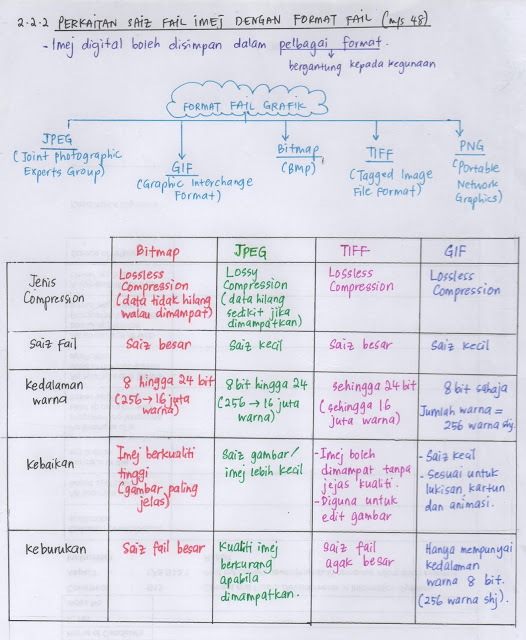 2.2.2 PERKAITAN SAIZ FAIL IMEJ DENGAN FORMAT FAIL (m/s 48)
- Imej digital boleh disimpan dalam pelbagai format.
bergantung kepada kegunaan
FORMAT FAIL GRAFIK
JPEG
(Joint photographic
Experts Group)
GIF
(Graphic Interchange
Format)
Bitmap
(BMP)
TIFF
(Tagged Image
File Format)
PNG
(Portable
Network
Graphics)
Bitmap
JPEG
TIFF
GIF
Jenis
Compression
Lossless
Compression
(data tidak hilang
walau dimampat)
Lossy
Compression
(data hilang
sedikit jika
dimampatkan)
Lossless
Compression
Lossless
Compression
Saiz fail
Saiz besar
Saiz kecil
Saiz besar
Saiz kecil
Kedalaman
warna
8 hingga 24 bit
(256 → 16 juta
warna)
8bit hingga 24
(256 → 16 juta
warna)
sehingga 24 bit
(sehingga 16
juta warna)
8 bit sahaja
Jumlah warna =
256 warna shj.
Kebaikan
Imej berkualiti
tinggi
(gambar paling
jelas)
Saiz gambar/
imej lebih kecil
- Imej boleh
dimampat tanpa
jejas kualiti.
- Diguna untuk
edit gambar
- Saiz kecil
- Sesuai untuk
lukisan kartun
dan animasi.
Keburukan
Saiz fail besar
Kualiti imej
berkurang
apabila
dimampatkan.
Saiz fail
agak besar
Hanya mempunyai
kedalaman
warna 8 bit.
(256 warna shj).